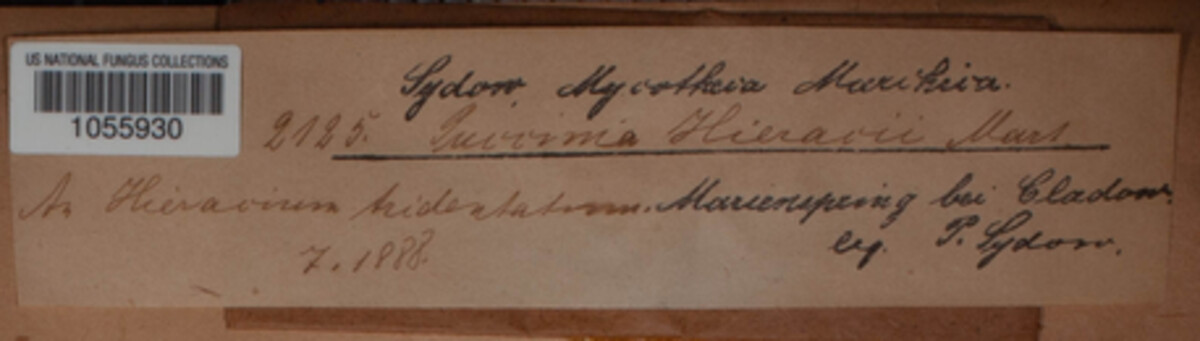 US NATIONAL FUNGUS COLLECTIONS
1055930
Sydow, Mycotheca Marchica.
2125. Puccinia Hieracii Mart.
An Hieracium tridentatum. Marienspring bei Cladow.
7. 1888. leg. P. Sydow.